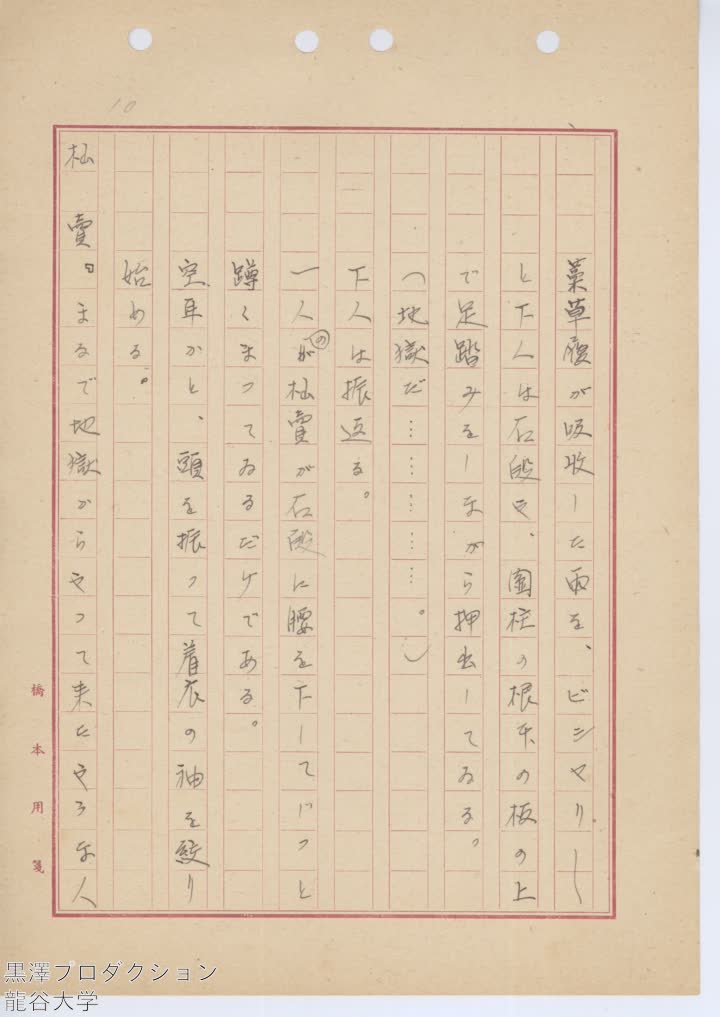 10
藁草履が吸收した雨を、ビシヤリ〳〵
と下人は石段や、圓柱の根本の板の上
で足踏みをしながら押出してゐる。
(地獄だ…………。)
下人は振返る。
一人の杣賣が石段に腰を下してじつと
蹲くまつてゐるだけである。
空耳かと、頭を振って着衣の袖を絞り
始める。
杣賣「まるで地獄からやつて来たやうな人
橋本用箋
黒澤プロダクション
龍谷大学